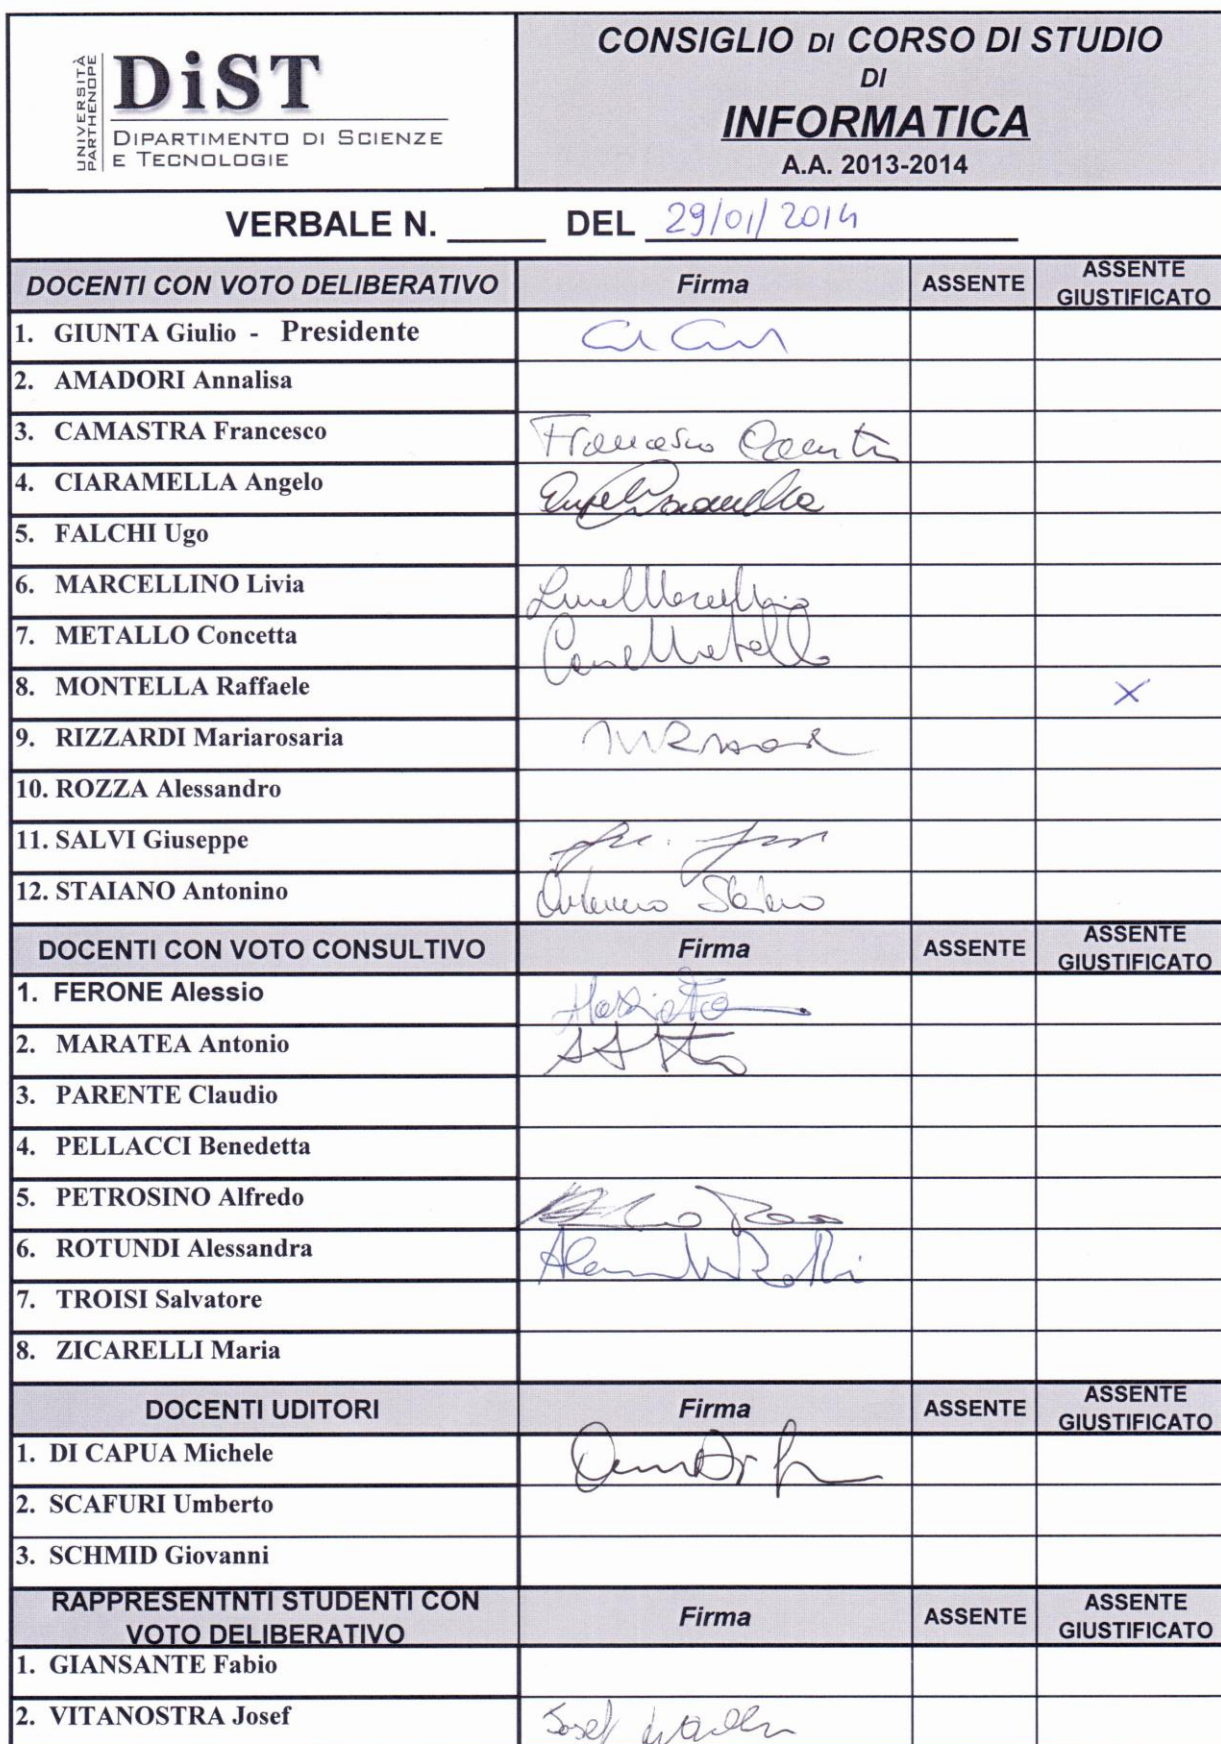 UNIVERSITÀ
PARTHENOPE
DiST
DIPARTIMENTO DI SCIENZE
E TECNOLOGIE
CONSIGLIO DI CORSO DI STUDIO
DI
INFORMATICA
A.A. 2013-2014
VERBALE N. ______ DEL 29/01/2014
DOCENTI CON VOTO DELIBERATIVO Firma ASSENTE ASSENTE GIUSTIFICATO
1. GIUNTA Giulio - Presidente
2. AMADORI Annalisa
3. CAMASTRA Francesco Francesco
4. CIARAMELLA Angelo
5. FALCHI Ugo
6. MARCELLINO Livia
7. METALLO Concetta
8. MONTELLA Raffaele X
9. RIZZARDI Mariarosaria
10. ROZZA Alessandro
11. SALVI Giuseppe
12. STAIANO Antonino
DOCENTI CON VOTO CONSULTIVO Firma ASSENTE ASSENTE GIUSTIFICATO
1. FERONE Alessio
2. MARATEA Antonio
3. PARENTE Claudio
4. PELLACCI Benedetta
5. PETROSINO Alfredo
6. ROTUNDI Alessandra
7. TROISI Salvatore
8. ZICARELLI Maria
DOCENTI UDITORI Firma ASSENTE ASSENTE GIUSTIFICATO
1. DI CAPUA Michele
2. SCAFURI Umberto
3. SCHMID Giovanni
RAPPRESENTNTI STUDENTI CON VOTO DELIBERATIVO Firma ASSENTE ASSENTE GIUSTIFICATO
1. GIANSANTE Fabio
2. VITANOSTRA Josef Josef